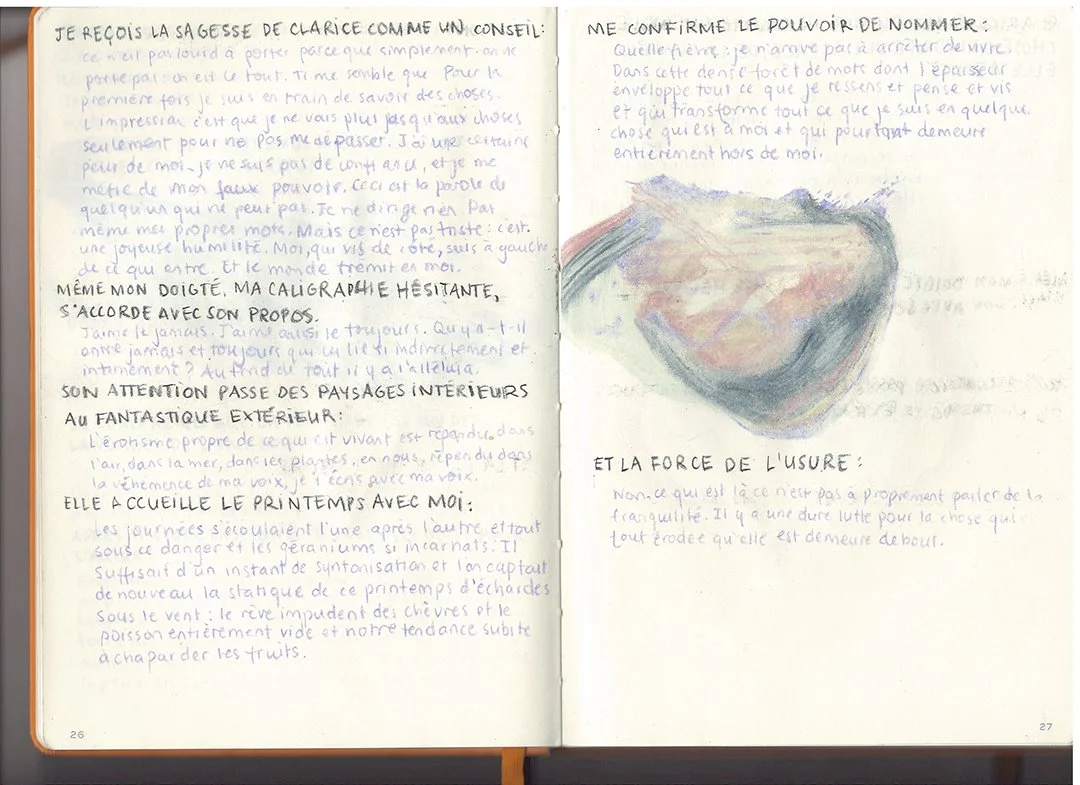 JE REÇOIS LA SAGESSE DE CLARICE COMME UN CONSEIL:
ce n'est pas lourd à porter parce que simplement on ne
porte pas: on est le tout. Il me semble que Pour la
première fois je suis en train de savoir des choses.
L'impression c'est que je ne vais plus jusqu'aux choses
seulement pour ne pas me dépasser. J'ai une certaine
peur de moi, je ne suis pas de confiance, et je me
méfie de mon faux pouvoir. Ceci est la parole de
quelqu'un qui ne peut pas. Je ne dirige rien. Pas
même mes propres mots. Mais ce n'est pas triste: c'est
une joyeuse humilité. Moi, qui vis de côté, suis à gauche
de ce qui entre. Et le monde frémit en moi.
MÊME MON DOIGTÉ, MA CALIGRAPHIE HÉSITANTE,
S'ACCORDE AVEC SON PROPOS.
J'aime le jamais. J'aime aussi le toujours. Qu'y a-t-il
entre jamais et toujours qui les lie si indirectement et
intimement? Au fond de tout il y a l'alléluia.
SON ATTENTION PASSE DES PAYSAGES INTÉRIEURS
AU FANTASTIQUE EXTÉRIEUR:
L'érotisme propre de ce qui est vivant est répandu dans
l'air, dans la mer, dans les plantes, en nous, répendu dans
la véhémence de ma voix, je t'écris avec ma voix.
ELLE ACCUEILLE LE PRINTEMPS AVEC MOI:
Les journées s'écoulaient l'une après l'autre et tout
sous ce danger et les géraniums si incarnats. Il
suffisait d'un instant de syntonisation et l'on captait
de nouveau la statique de ce printemps d'échardes
sous le vent: le rêve impudent des chèvres et le
poisson entièrement vide et notre tendance subite
à chaparder les fruits.
26
ME CONFIRME LE POUVOIR DE NOMMER:
Quelle fièvre: je n'arrive pas à arrêter de vivre.
Dans cette dense forêt de mots dont l'épaisseur
enveloppe tout ce que je ressens et pense et vis
et qui transforme tout ce que je suis en quelque
chose qui est à moi et qui pourtant demeure
entièrement hors de moi.
ET LA FORCE DE L'USURE:
Non, ce qui est là ce n'est pas à proprement parler de la
tranquilité. Il y a une dure lutte pour la chose qui
tout érodée qu'elle est demeure debout.
27